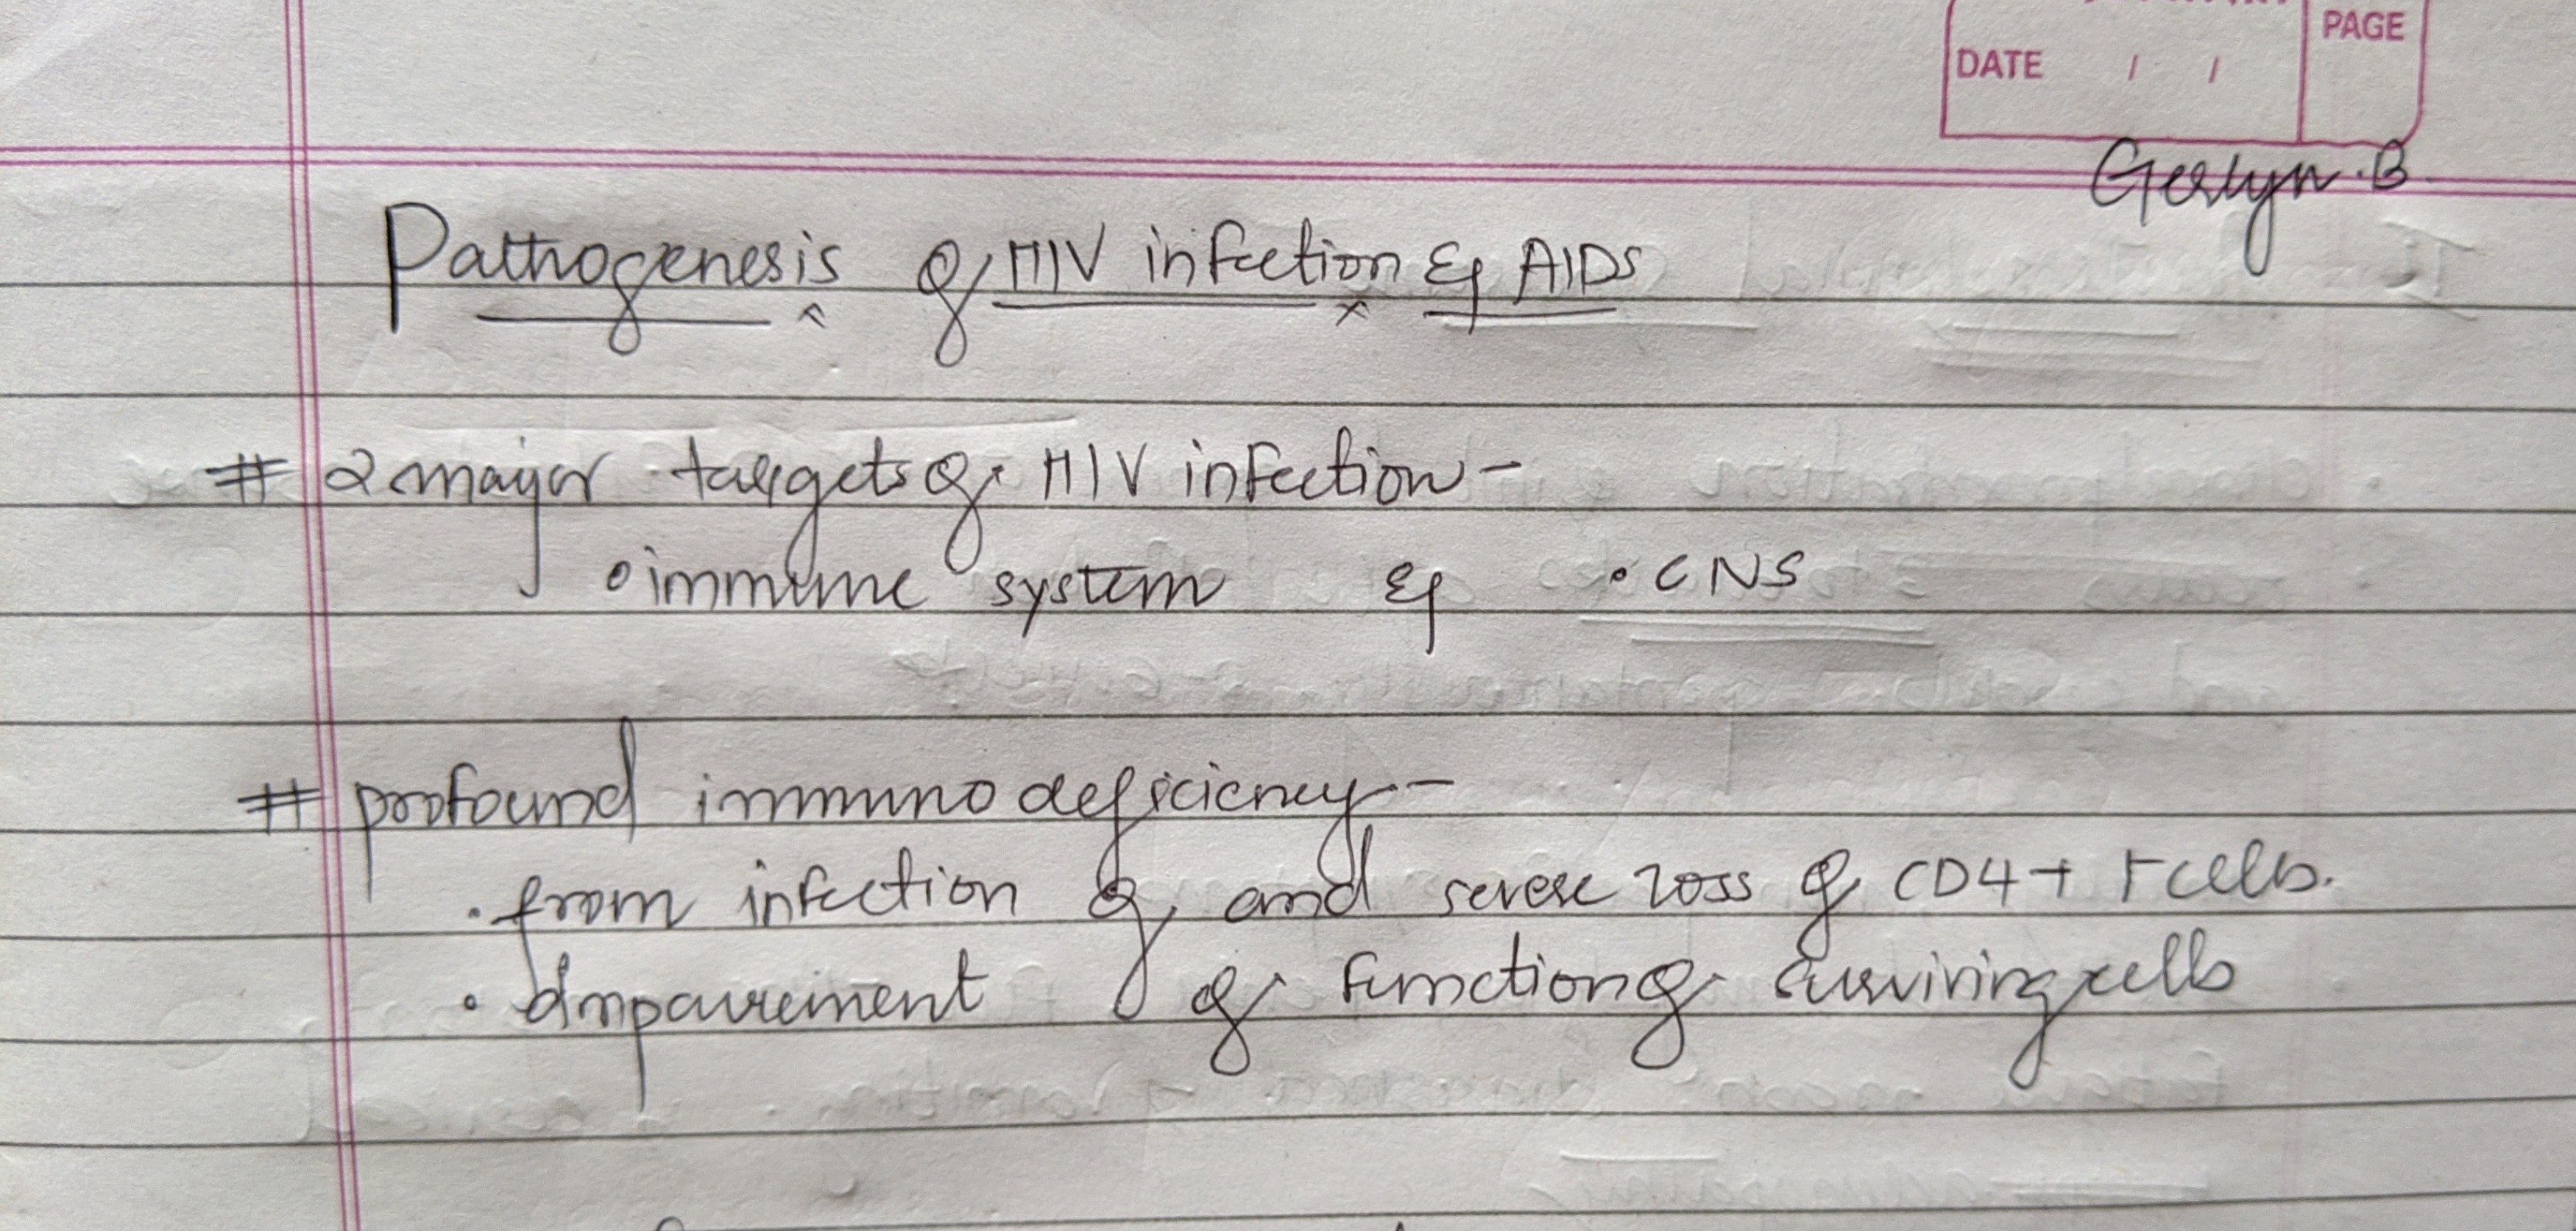 PAGE
DATE / /
Gerlyn.B
Pathogenesis of HIV infection & AIDS
# 2 major targets of HIV infection -
• immune system & • CNS
# profound immunodeficiency -
• from infection of and severe loss of CD4+ T cells.
• Impairement of function of surviving cells